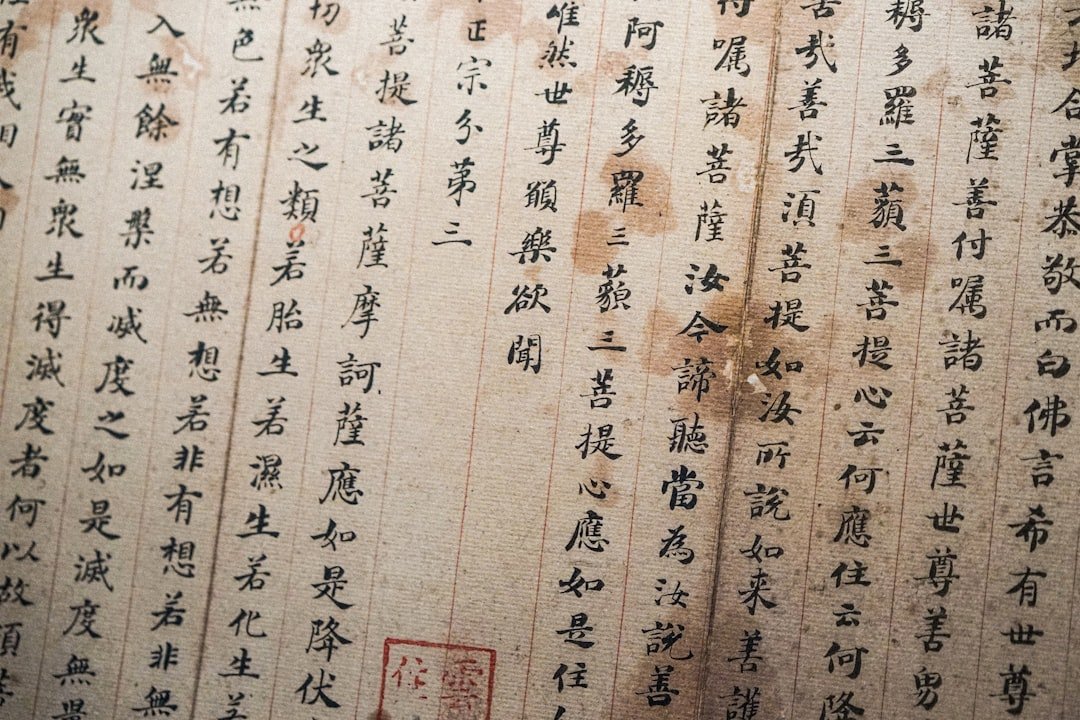 地合掌恭敬而白佛言希有世尊
諸菩薩善付囑諸菩薩世尊善男
耨多羅三藐三菩提心云何應住云何降
善哉善哉須菩提如汝所說如来善護
付囑諸菩薩汝今諦聽當為汝說善
阿耨多羅三藐三菩提心應如是住
唯然世尊願樂欲聞
正宗分第三
菩提諸菩薩摩訶薩應如是降伏
切衆生之類若胎生若濕生若化生若
無色若有想若無想若非有想若非無
入無餘涅槃而滅度之如是滅度無量
衆生實無衆生得滅度者何以故須菩
有我相人